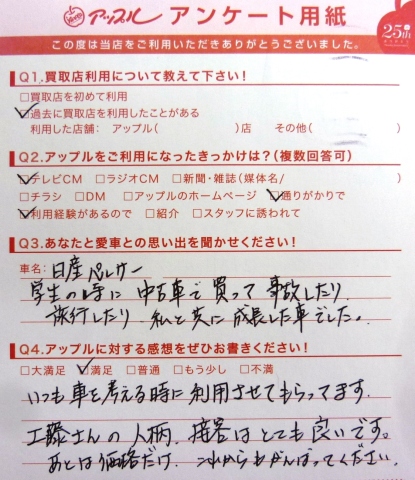 アップル アンケート用紙
この度は当店をご利用いただきありがとうございました。
25th
Q1.買取店利用について教えて下さい!
□買取店を初めて利用
□過去に買取店を利用したことがある
利用した店舗: アップル( )店 その他( )
Q2.アップルをご利用になったきっかけは?(複数回答可)
□テレビCM □ラジオCM □新聞・雑誌(媒体名/ )
□チラシ □DM □アップルのホームページ □通りがかりで
□利用経験があるので □紹介 □スタッフに誘われて
Q3.あなたと愛車との思い出を聞かせください!
車名: 日産 パルサー
学生の時に 中古車で 買って 事故したり
旅行したり 私と共に 成長した車でした。
Q4.アップルに対する感想をぜひお書きください!
□大満足 □満足 □普通 □もう少し □不満
いつも 車を考える時に 利用させてもらってます.
工藤さんの 人柄. 接客は とても 良いです。
あとは価格だけ. これからもがんばってください.